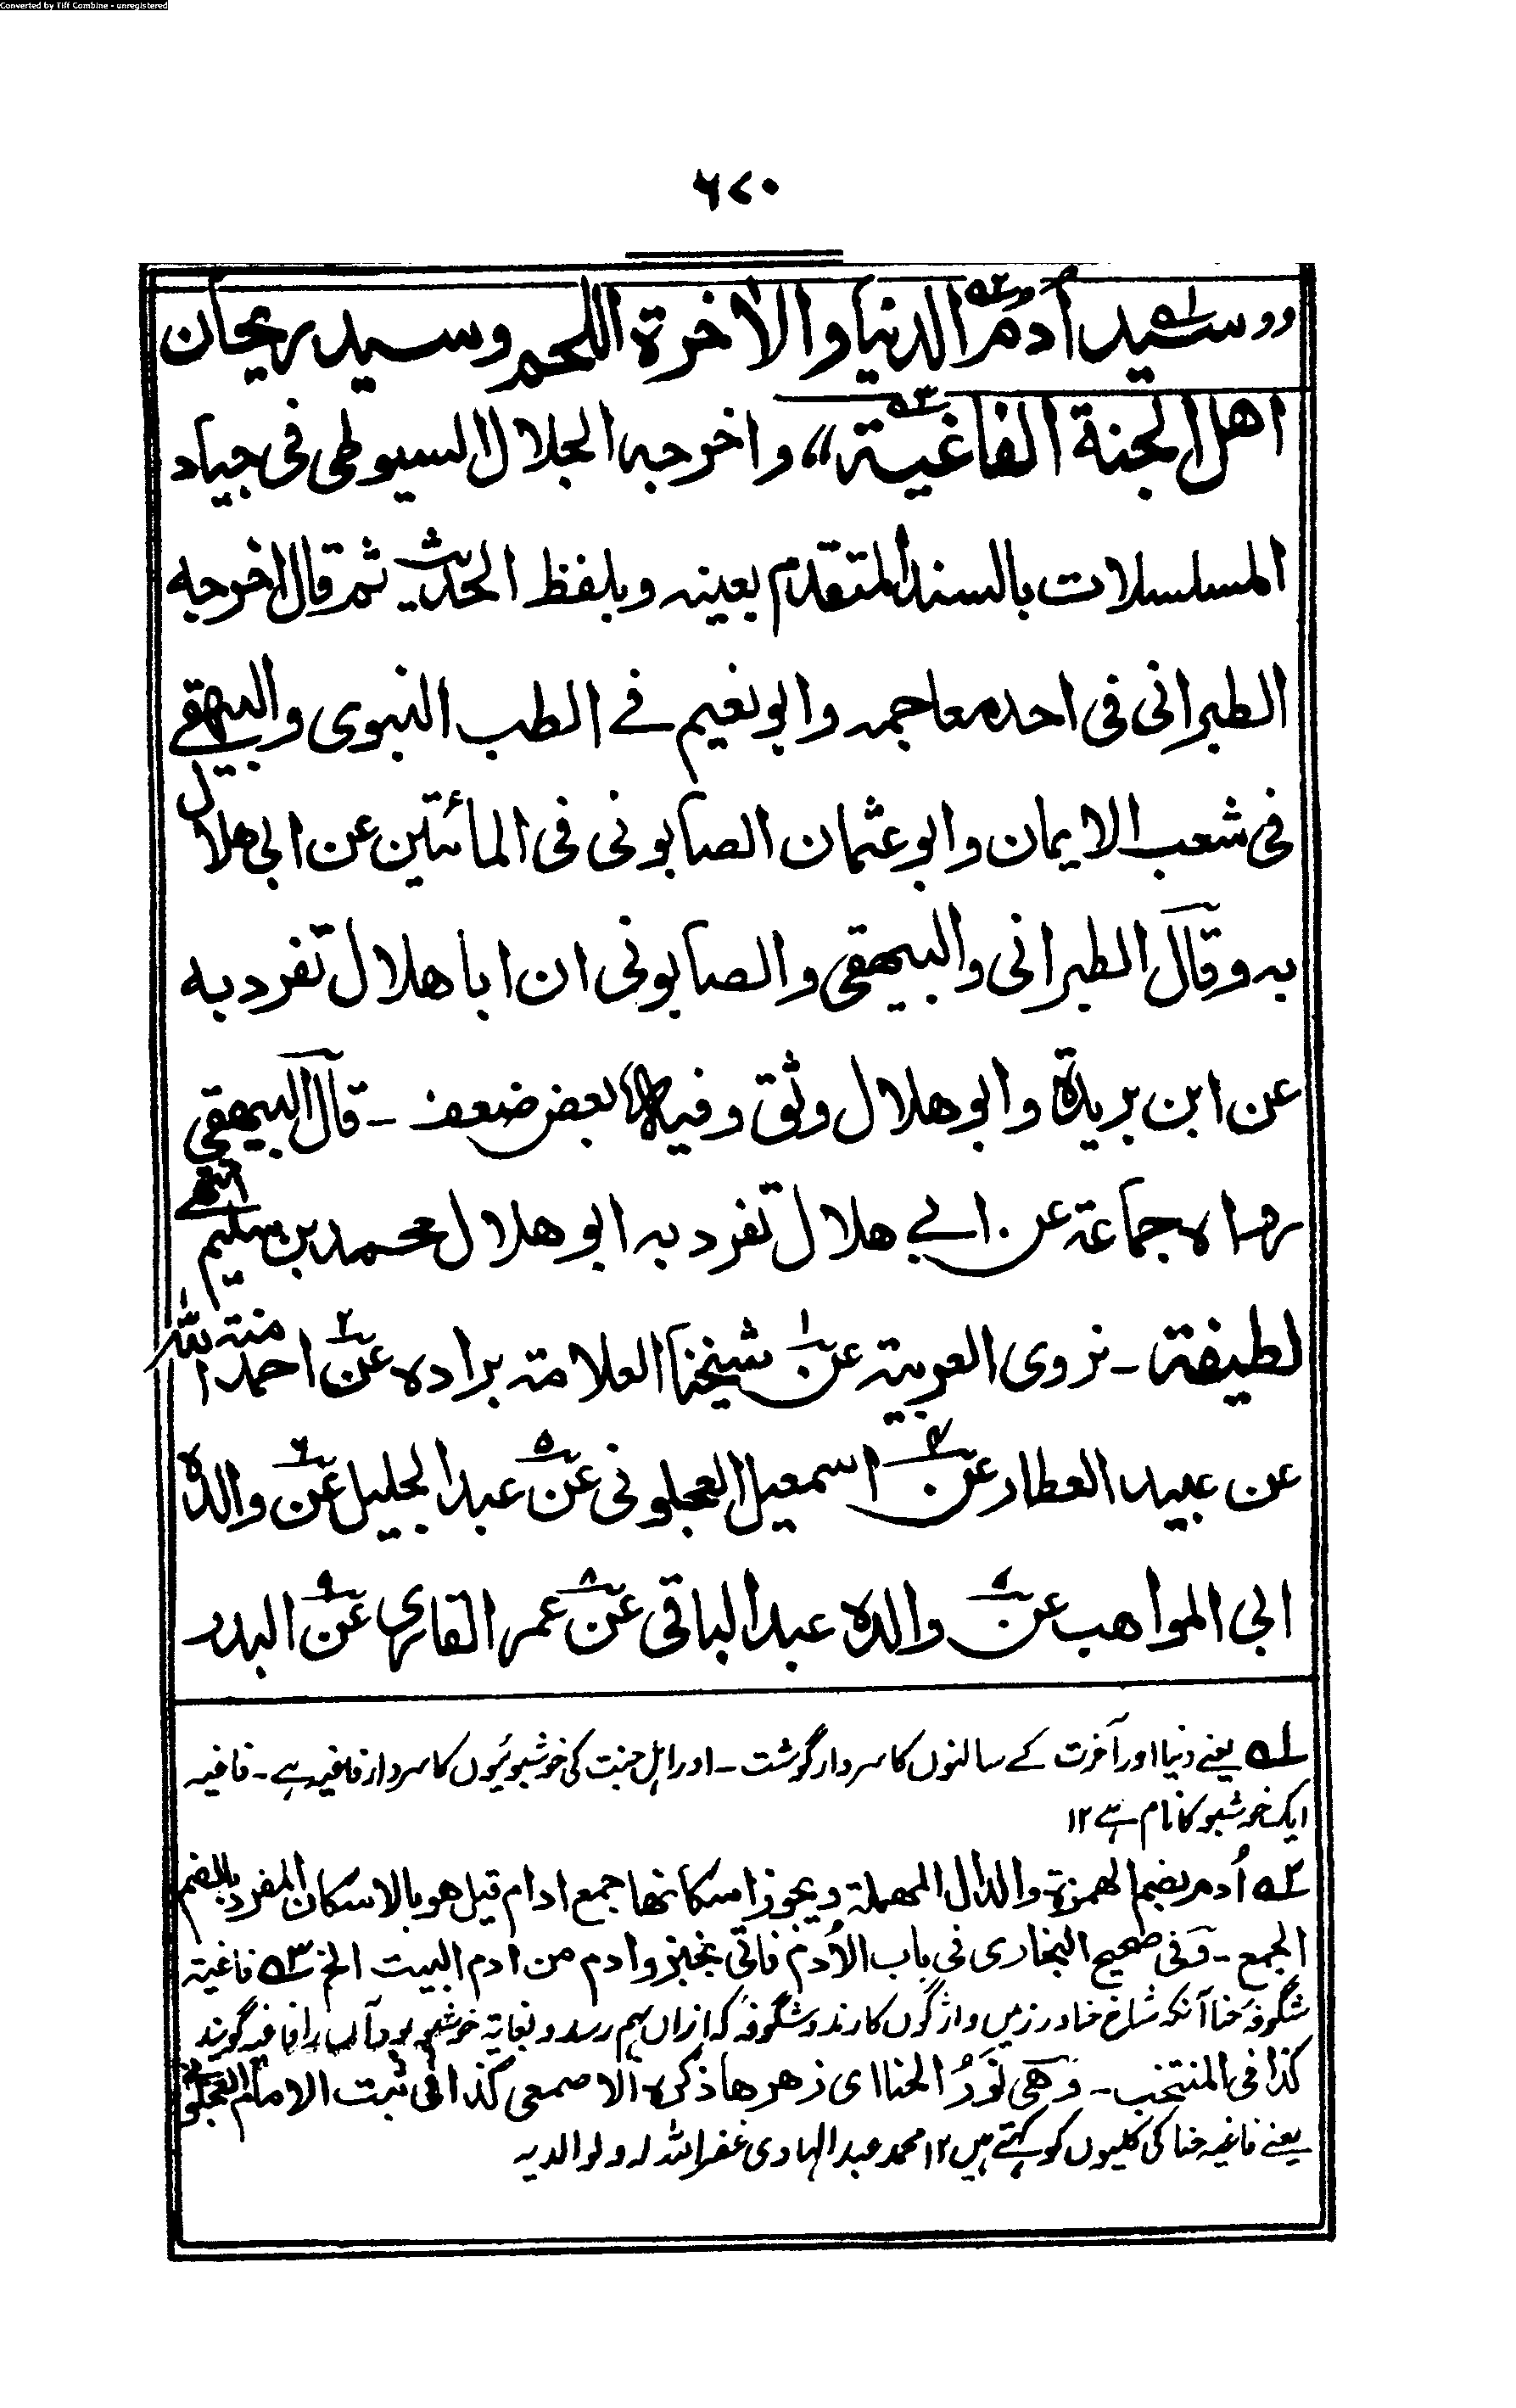 Converted by Tiff Combine - unregistered
۶۷۰
״سید۱؎ أدم۲؎ الدنیا والاٰخرة اللحم وسید ریحان
اهل الجنة الفاغیة۳؎״ واخرجه الجلال السیوطی فی جیاد
المسلسلات بالسند المتقدم بعینه وبلفظ الحدیث ثم قال اخرجه
الطبرانی فی احد معاجمه وابو نعیم فے الطب النبوی والبیهقے
فی شعب الایمان وابو عثمان الصابونی فی المائتین عن ابی هلال
به وقال الطبرانی والبیهقی والصابونی ان ابا هلال تفرد به
عن ابن بریدة وابو هلال وثق وفیه بعض ضعف - قال البیهقی
رواه جماعة عن ابی هلال تفرد به ابو هلال محمد بن سلیم انتهے
لطیفة - نروی العربیة عن۱ شیخنا العلامة براده عن۲ احمد منة الله
عن عبید العطار عن۴ اسمعیل العجلونی عن۵ عبد الجلیل عن۶ والده
ابی المواهب عن۷ والده عبد الباقی عن۸ عمر القاری عن۹ البدر
۱؎ یعنے دنیا اور آخرت کے سالنوں کا سردار گوشت - اور اہل جنت کی خوشبوئیوں کا سردار فاغیہ ہے - فاغیہ
ایک خوشبو کا نام ہے ۱۲
۲؎ أدم بضم الهمزة والدال المهملة ویجوز اسکانها جمع ادام قیل هو بالاسکان المفرد بالضم
الجمع - وفی صحیح البخاری فی باب الاُدم فاتی بخبز وادم من ادم البیت الخ ۳؎ فاغیة
شگوفۂ حنا آنکہ شاخ حنا در زمیں واژگوں کارند و شگوفہ کہ ازاں بہم رسد و بغایة خوشبو بود آں را فاغیہ گویند
کذا فی المنتخب - وهی نَورُ الحنا ای زهرها ذکره الاصمعی کذا فی ثبت الامام العجلونی
یعنے فاغیہ حنا کی کلیوں کو کہتے ہیں ۱۲ محمد عبد الہادی غفر اللہ لہ ولوالدیہ